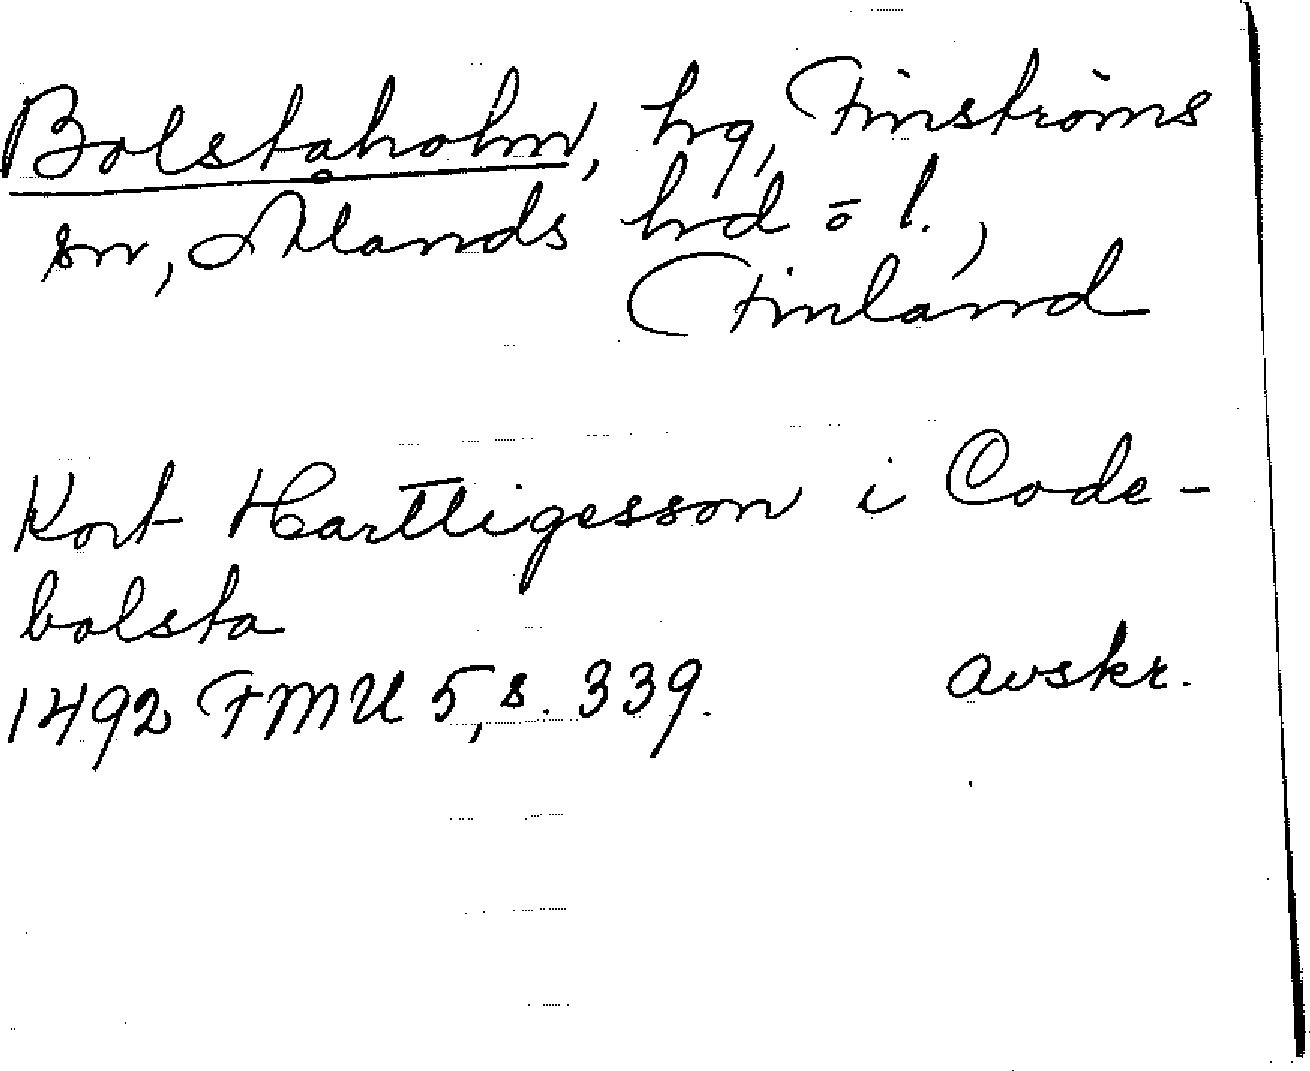 Bolstaholm, hg, Finströms
sn, Ålands hd o l.,
Finland
Kort Hartligesson i Code-
bolsta
1492 FMU 5, s. 339. avskr.